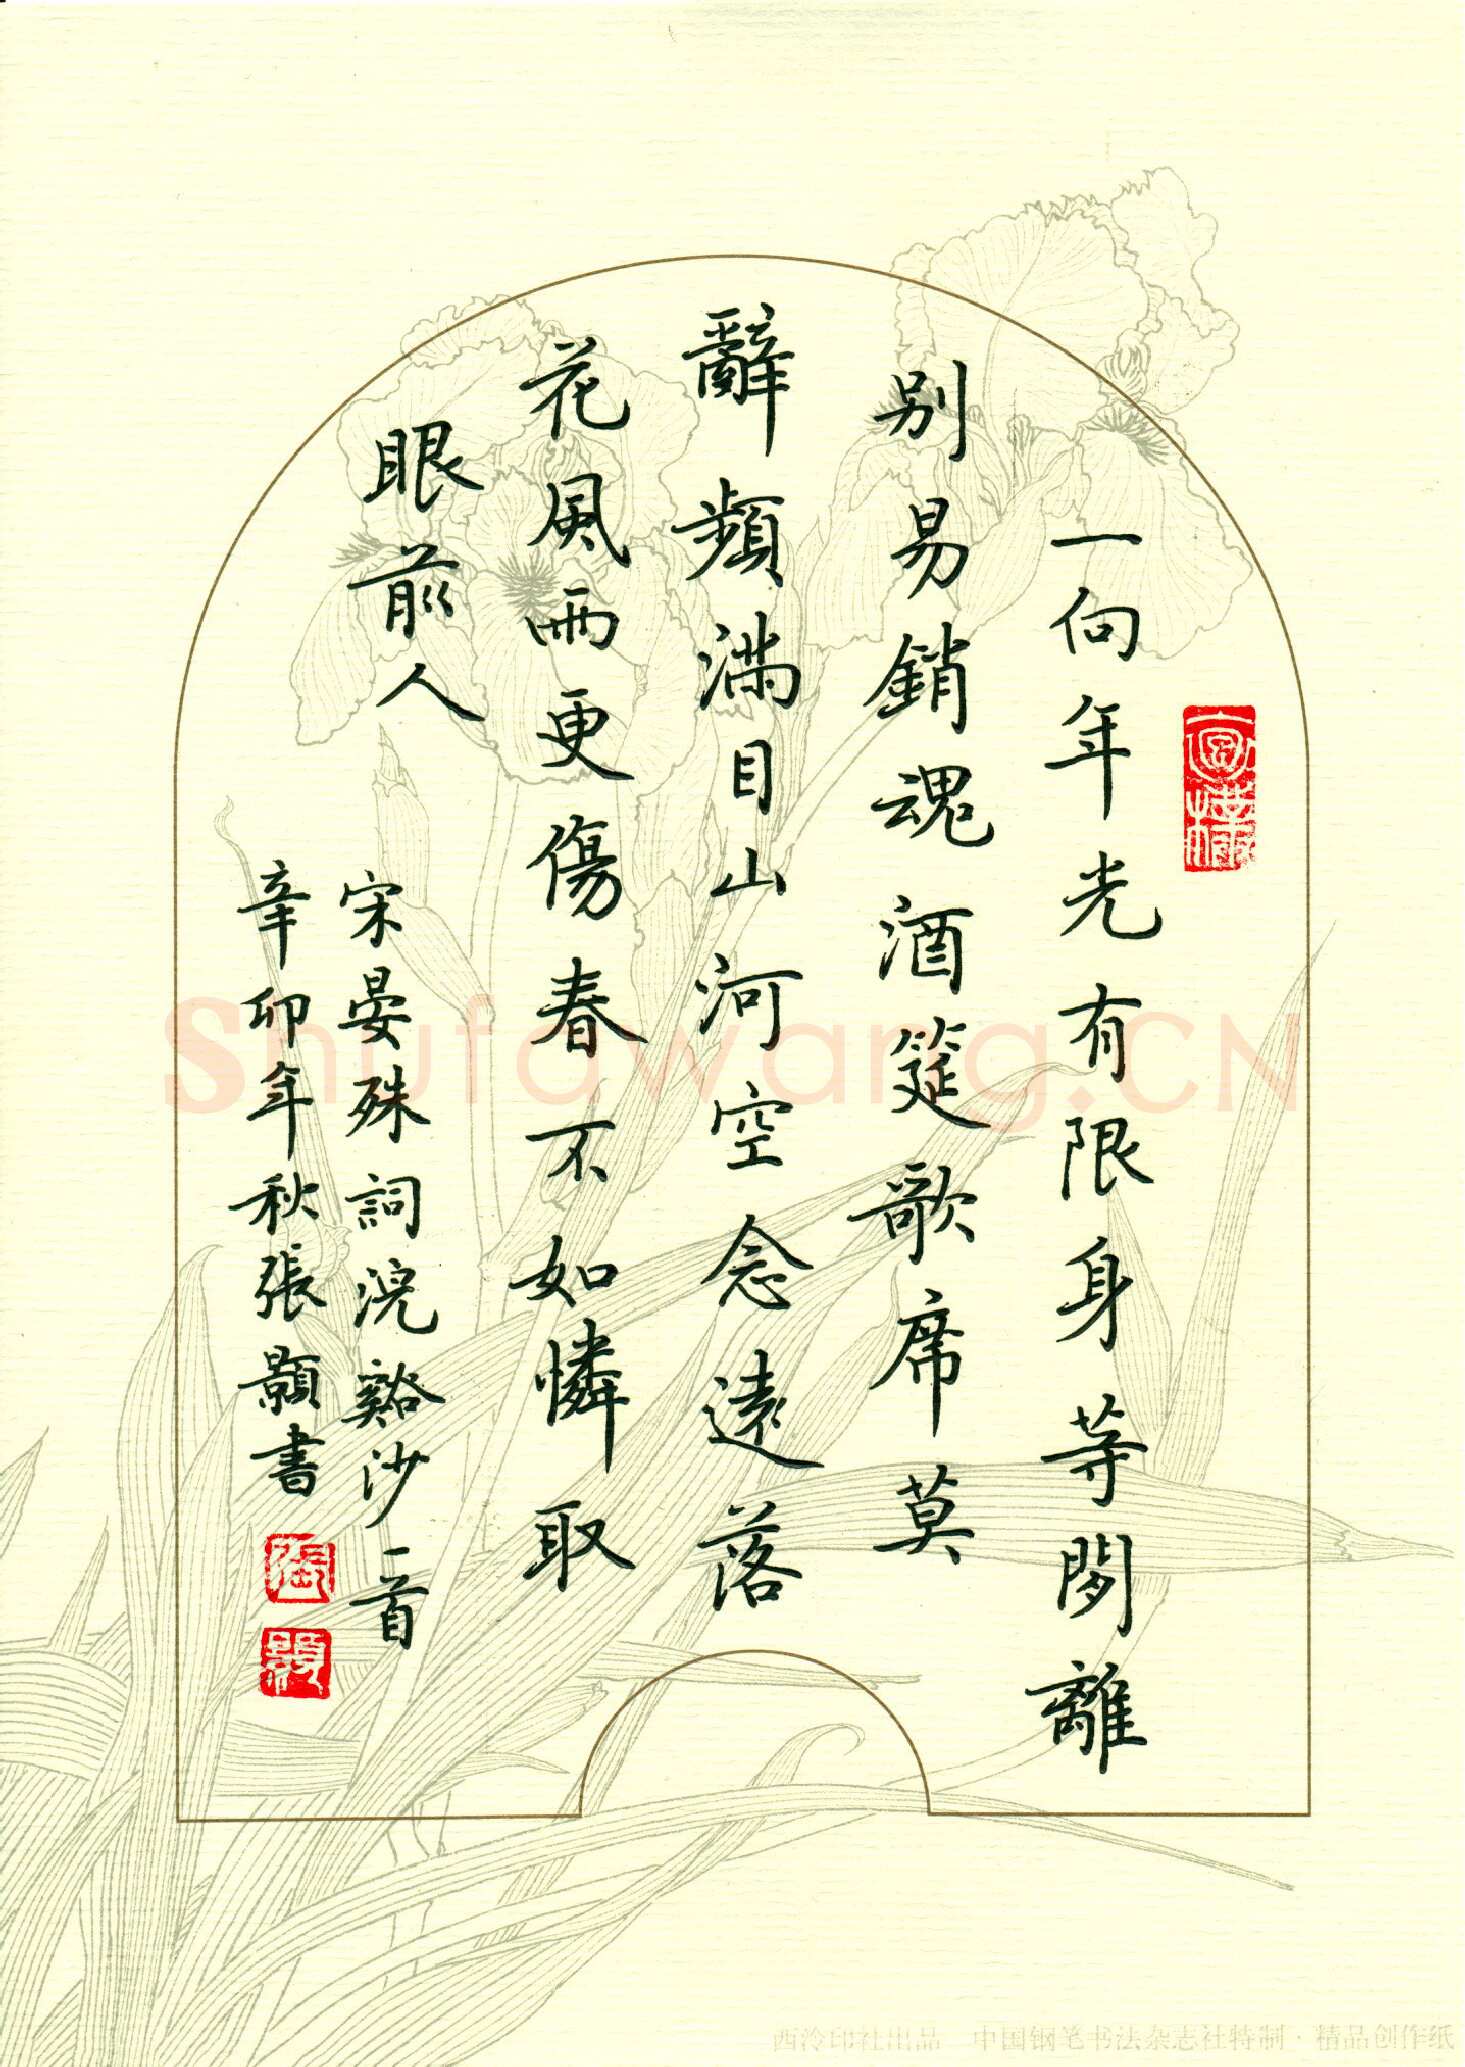 一向年光有限身等閒離
別易銷魂酒筵歌席莫
辭頻滿目山河空念遠落
花風雨更傷春不如憐取
眼前人
宋晏殊詞浣谿沙一首
辛卯年秋張顥書
Shufawang.CN
西泠印社出品 中国钢笔书法杂志社特制·精品创作纸